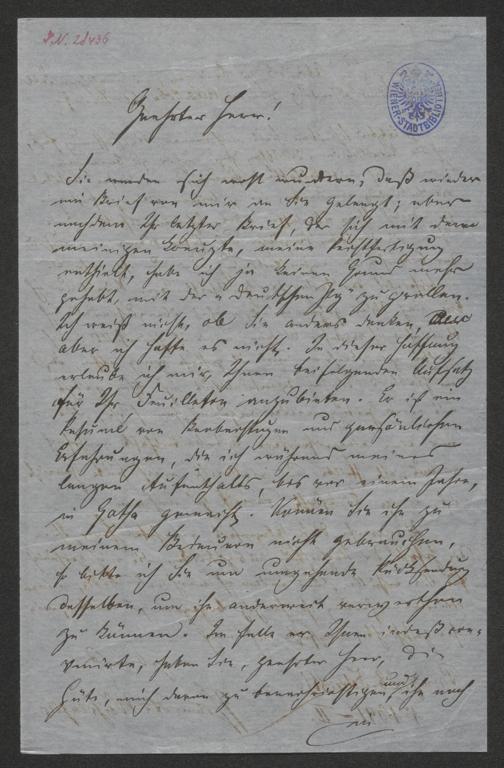 J.N. 28436
WIENER-STADTBIBLIOTHEK
Geehrter Herr!
Sie werden sich wohl wundern, daß wieder
ein Brief von mir an Sie gelangt; aber
nachdem Ihr letzter Brief, der sich mit dem
meinigen kreuzte, meine Rechtfertigung
enthielt, habe ich ja keinen Grund mehr
gehabt, mit der „Deutschen Ztg“ zu grollen.
Ich weiß nicht, ob Sie anders denken,
aber ich hoffe es nicht. In dieser Hoffnung
erlaube ich mir, Ihnen beifolgenden Aufsatz
für Ihr Feuilleton anzubieten. Er ist ein
Resumé von Beobachtungen und persönlichen
Erfahrungen, die ich während meines
langen Aufenthalts, bis vor einem Jahre,
in Gotha gemacht. Können Sie ihn zu
meinem Bedauern nicht gebrauchen,
so bitte ich Sie um umgehende Rücksendung
desselben, um ihn anderweit verwerthen
zu können. Im Falle er Ihnen indeß con-
venirte, haben Sie, geehrter Herr, die
Güte, mich davon zu benachrichtigen und ihn nach